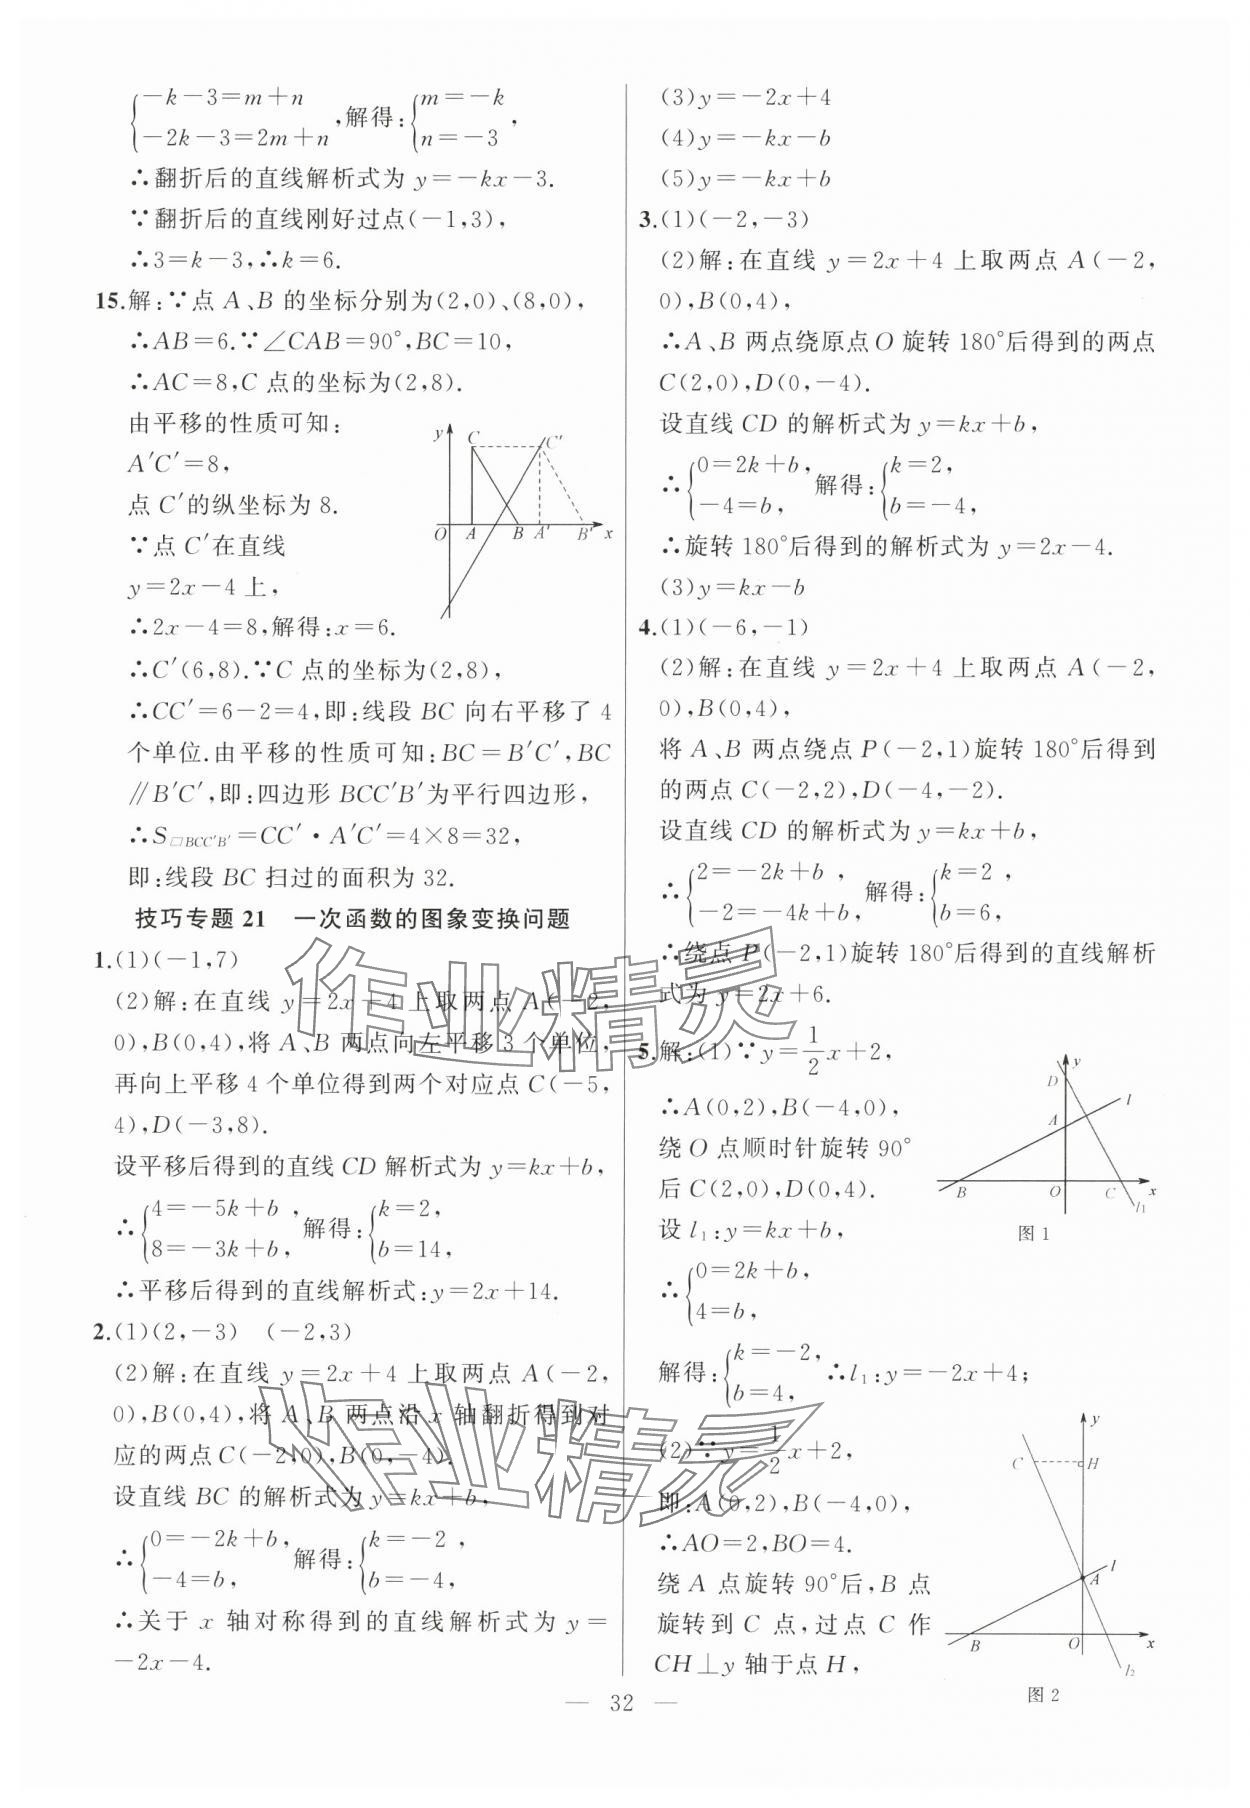 {−k−3=m+n −2k−3=2m+n ,解得:{m=−k n=−3 ,
∴翻折后的直线解析式为 y=−kx−3.
∵翻折后的直线刚好过点(−1,3),
∴3=k−3,∴k=6.
15.解:∵点 A、B 的坐标分别为(2,0)、(8,0),
∴AB=6.∵∠CAB=90°,BC=10,
∴AC=8,C 点的坐标为(2,8).
由平移的性质可知:
A′C′=8,
点 C′的纵坐标为 8.
∵点 C′在直线
y=2x−4 上,
∴2x−4=8,解得:x=6.
y C C′ O A B A′ B′ x
∴C′(6,8).∵C 点的坐标为(2,8),
∴CC′=6−2=4,即:线段 BC 向右平移了 4
个单位.由平移的性质可知:BC=B′C′,BC
∥B′C′,即:四边形 BCC′B′为平行四边形,
∴S▱BCC′B′=CC′·A′C′=4×8=32,
即:线段 BC 扫过的面积为 32.
技巧专题 21 一次函数的图象变换问题
1.(1)(−1,7)
(2)解:在直线 y=2x+4 上取两点 A(−2,
0),B(0,4),将 A、B 两点向左平移 3 个单位,
再向上平移 4 个单位得到两个对应点 C(−5,
4),D(−3,8).
设平移后得到的直线 CD 解析式为 y=kx+b,
∴{4=−5k+b 8=−3k+b ,解得:{k=2, b=14,
∴平移后得到的直线解析式:y=2x+14.
2.(1)(2,−3) (−2,3)
(2)解:在直线 y=2x+4 上取两点 A(−2,
0),B(0,4),将 A、B 两点沿 x 轴翻折得到对
应的两点 C(−2,0),B(0,−4).
设直线 BC 的解析式为 y=kx+b,
∴{0=−2k+b, −4=b, 解得:{k=−2 , b=−4,
∴关于 x 轴对称得到的直线解析式为 y=
−2x−4.
(3)y=−2x+4
(4)y=−kx−b
(5)y=−kx+b
3.(1)(−2,−3)
(2)解:在直线 y=2x+4 上取两点 A(−2,
0),B(0,4),
∴A、B 两点绕原点 O 旋转 180°后得到的两点
C(2,0),D(0,−4).
设直线 CD 的解析式为 y=kx+b,
∴{0=2k+b, −4=b, 解得:{k=2, b=−4,
∴旋转 180°后得到的解析式为 y=2x−4.
(3)y=kx−b
4.(1)(−6,−1)
(2)解:在直线 y=2x+4 上取两点 A(−2,
0),B(0,4),
将 A、B 两点绕点 P(−2,1)旋转 180°后得到
的两点 C(−2,2),D(−4,−2).
设直线 CD 的解析式为 y=kx+b,
∴{2=−2k+b , −2=−4k+b, 解得:{k=2 , b=6,
∴绕点 P(−2,1)旋转 180°后得到的直线解析
式为 y=2x+6.
5.解:(1)∵y=1/2x+2,
∴A(0,2),B(−4,0),
绕 O 点顺时针旋转 90°
后 C(2,0),D(0,4).
设 l₁:y=kx+b,
∴{0=2k+b, 4=b,
y D A l B O C x l₁
图 1
解得:{k=−2, b=4, ∴l₁:y=−2x+4;
(2)∵y=1/2x+2,
即:A(0,2),B(−4,0),
∴AO=2,BO=4.
绕 A 点旋转 90°后,B 点
旋转到 C 点,过点 C 作
CH⊥y 轴于点 H,
y C H l A B O x l₂
图 2
— 32 —
作业精灵
作业精灵